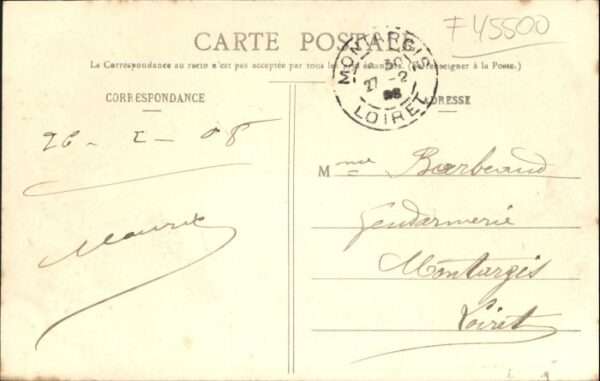 F45500
CARTE POSTALE
La Correspondance au recto n'est pas acceptée par tous les pays étrangers. (Se renseigner à la Poste.)
MONTARGIS
30
27 -2
08
LOIRET
CORRESPONDANCE
ADRESSE
26 - 2 - 08
Maurice
Mme Barbeaud
Gendarmerie
Montargis
Loiret